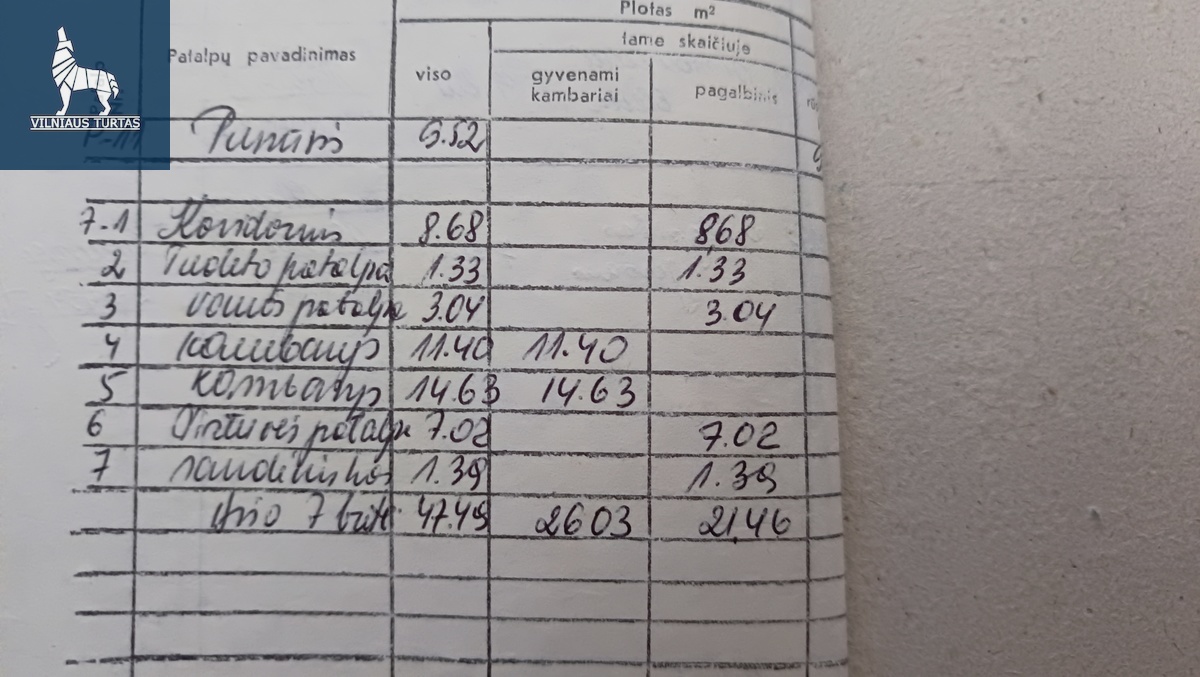 VILNIAUS TURTAS
Plotas m²
tame skaičiuje
Patalpų pavadinimas
viso
gyvenami kambariai
pagalbinis
9.52
7-1 Koridorius 8.68 8,68
2 Tualeto patalpa 1.33 1.33
3 vonios patalpa 3.04 3.04
4 kambarys 11.40 11.40
5 kambarys 14.63 14.63
6 Virtuvės patalpa 7.02 7.02
7 sandėliukas 1.39 1.39
Viso 7 but. 47.49 2603 21,46